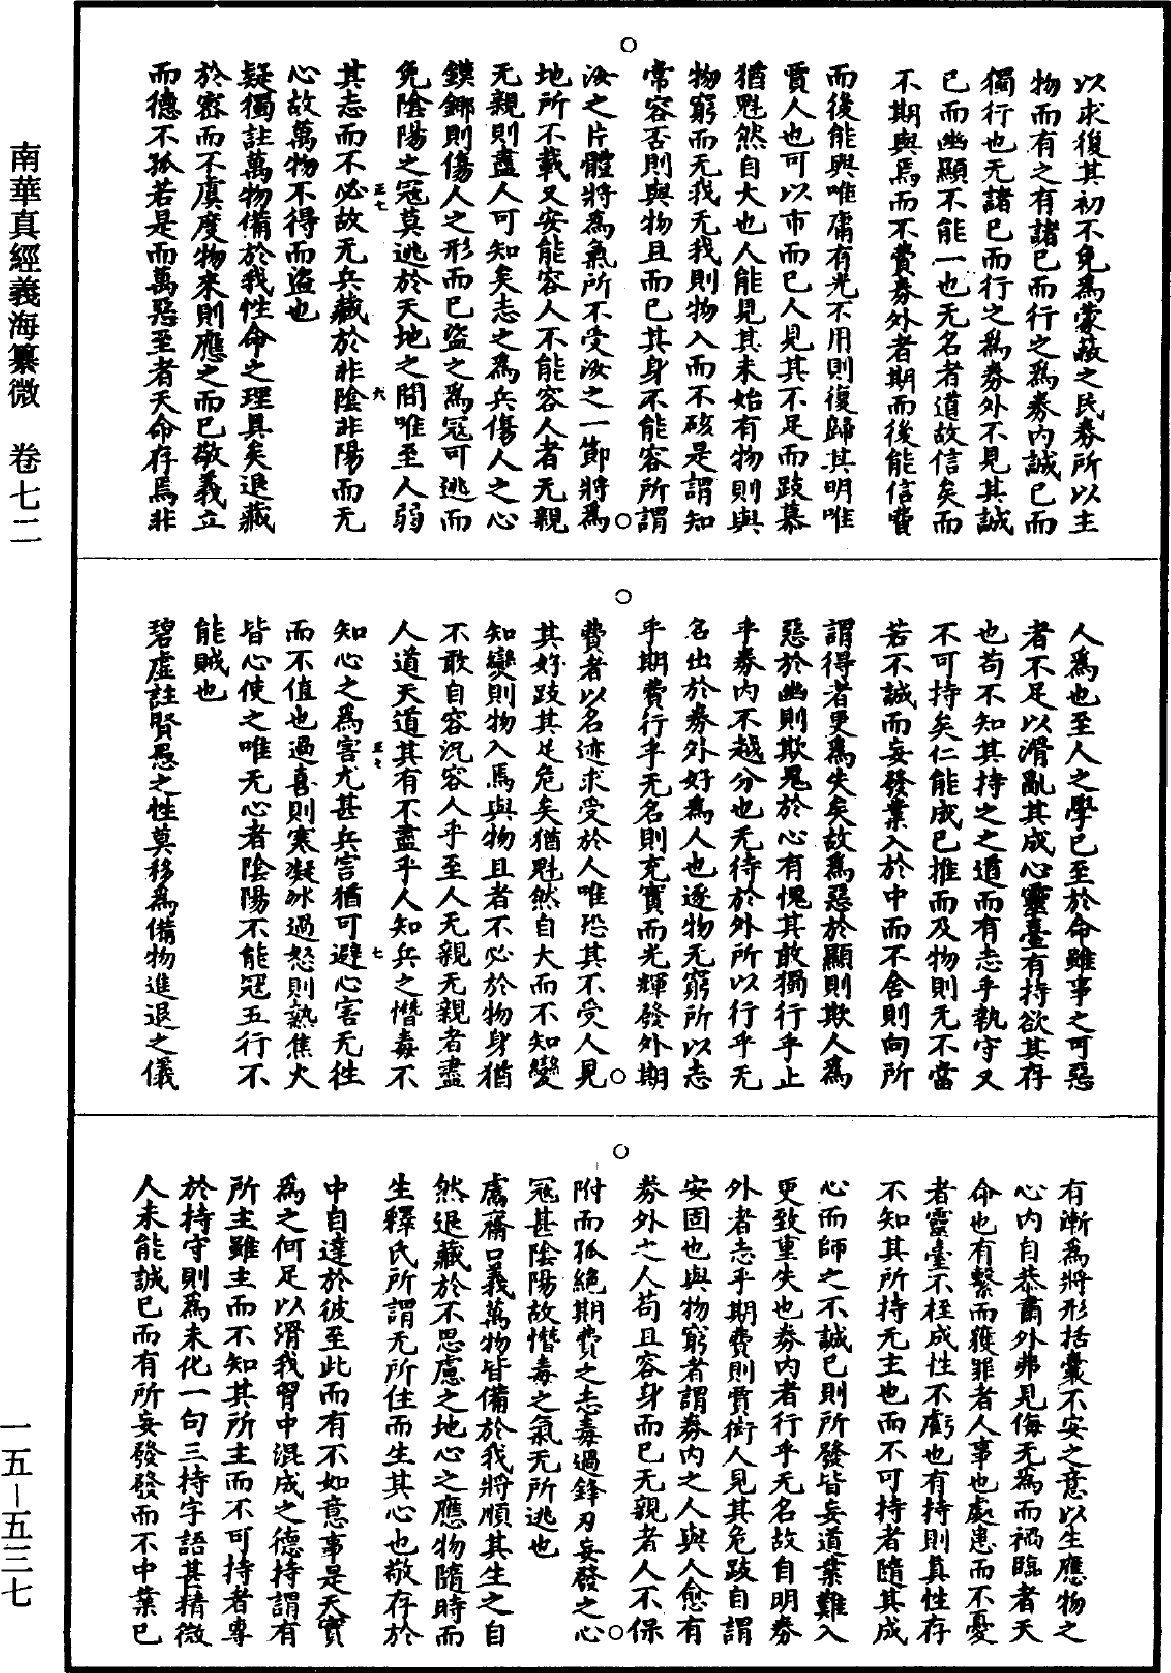 南華真經義海纂微　卷七二
以求復其初不免為蒙蔽之民券所以主
物而有之有諸己而行之為券內誠己而
獨行也无諸己而行之為券外不見其誠
己而幽顯不能一也无名者道故信矣而
不期與焉而不費券外者期而後能信費
而後能與唯庸有光不用則復歸其明唯
賈人也可以市而已人見其不足而跂慕
猶魁然自大也人能見其未始有物則與
物窮而无我无我則物入而不核是謂知
常容否則與物且而已其身不能容所謂
汝之片體將為氣所不受汝之一節將為
地所不載又安能容人不能容人者无親
无親則盡人可知矣志之為兵傷人之心
鏌鋣則傷人之形而已盜之為冦可逃而
免陰陽之冦莫逃於天地之間唯至人弱
其志而不必故无兵藏於非陰非陽而无
心故萬物不得而盜也
疑獨註萬物備於我性命之理具矣退藏
於密而不虞度物來則應之而已敬義立
而德不孤若是而萬惡至者天命存焉非
人為也至人之學已至於命雖事之可惡
者不足以滑亂其成心靈臺有持欲其存
也苟不知其持之之道而有志乎執守又
不可持矣仁能成己推而及物則无不當
若不誠而妄發業入於中而不舍則向所
謂得者更為失矣故為惡於顯則欺人為
惡於幽則欺鬼於心有愧其敢獨行乎止
乎券內不越分也无待於外所以行乎无
名出於券外好為人也逐物无窮所以志
乎期費行乎无名則充實而光輝發外期
費者以名迹求受於人唯恐其不受人見
其好跂其足危矣猶魁然自大而不知變
知變則物入焉與物且者不必於物身猶
不敢自容況容人乎至人无親无親者盡
人道天道其有不盡乎人知兵之憯毒不
知心之為害尤甚兵害猶可避心害无往
而不值也過喜則寒凝冰過怒則熱焦火
皆心使之唯无心者陰陽不能冦五行不
能賊也
碧虛註賢愚之性莫移為備物進退之儀
有漸為將形括囊不妄之意以生應物之
心內自恭肅外弗見侮无為而禍臨者天
命也有繫而獲罪者人事也處患而不憂
者靈臺不桎成性不虧也有持則真性存
不知其所持无主也而不可持者隨其成
心而師之不誠己則所發皆妄道業難入
更致重失也券內者行乎无名故自明券
外者志乎期費則賈衒人見其危跂自謂
安固也與物窮者謂券內之人與人愈有
券外之人苟且容身而已无親者人不保
附而孤絕期費之志毒過鋒刃妄發之心
冦甚陰陽故憯毒之氣无所逃也
鬳齋口義萬物皆備於我將順其生之自
然退藏於不思慮之地心之應物隨時而
生釋氏所謂无所住而生其心也敬存於
中自達於彼至此而有不如意事是天實
為之何足以滑我胷中混成之德持謂有
所主雖主而不知其所主而不可持者專
於持守則為未化一句三持字語甚精微
人未能誠己而有所妄發發而不中業已
一五—五三七